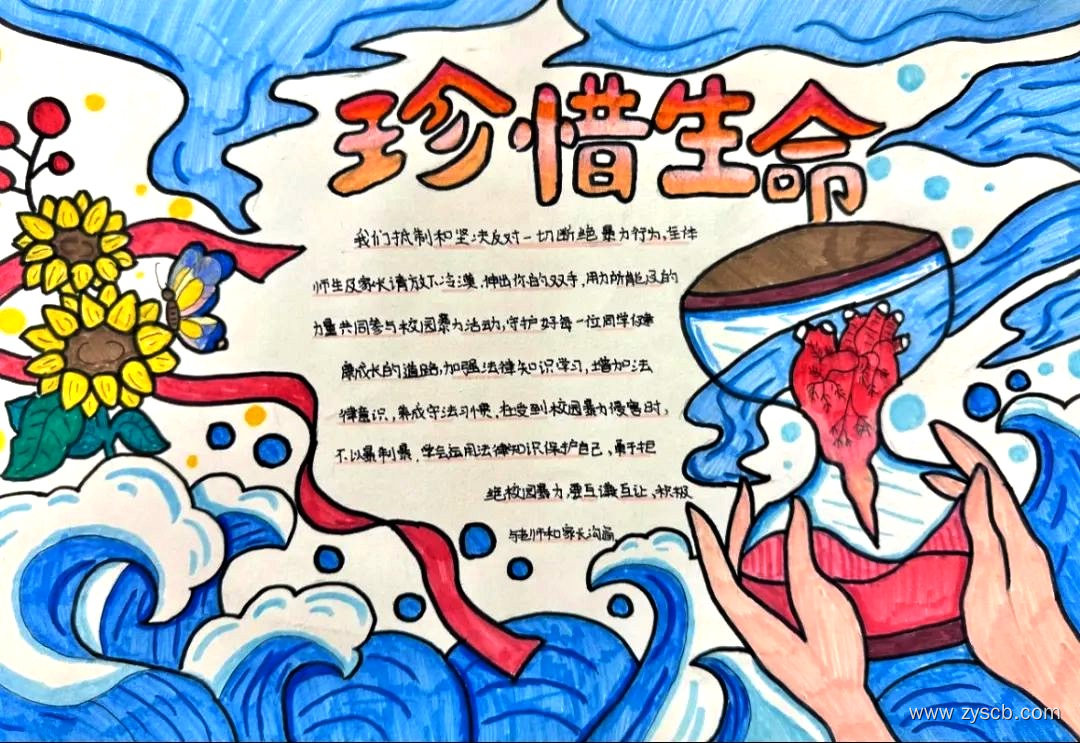 珍惜生命
我们抵制和坚决反对一切断绝暴力行为,全体
师生及家长请放下冷漠,伸出你的双手,用力所能及的
力量共同参与校园暴力活动,守护好每一位同学健
康成长的道路,加强法律知识学习,增加法
律意识,养成守法习惯,在受到校园暴力侵害时,
不以暴制暴,学会运用法律知识保护自己,勇于拒
绝校园暴力,要互谦互让,积极
与老师和家长沟通
www.zyscb.com